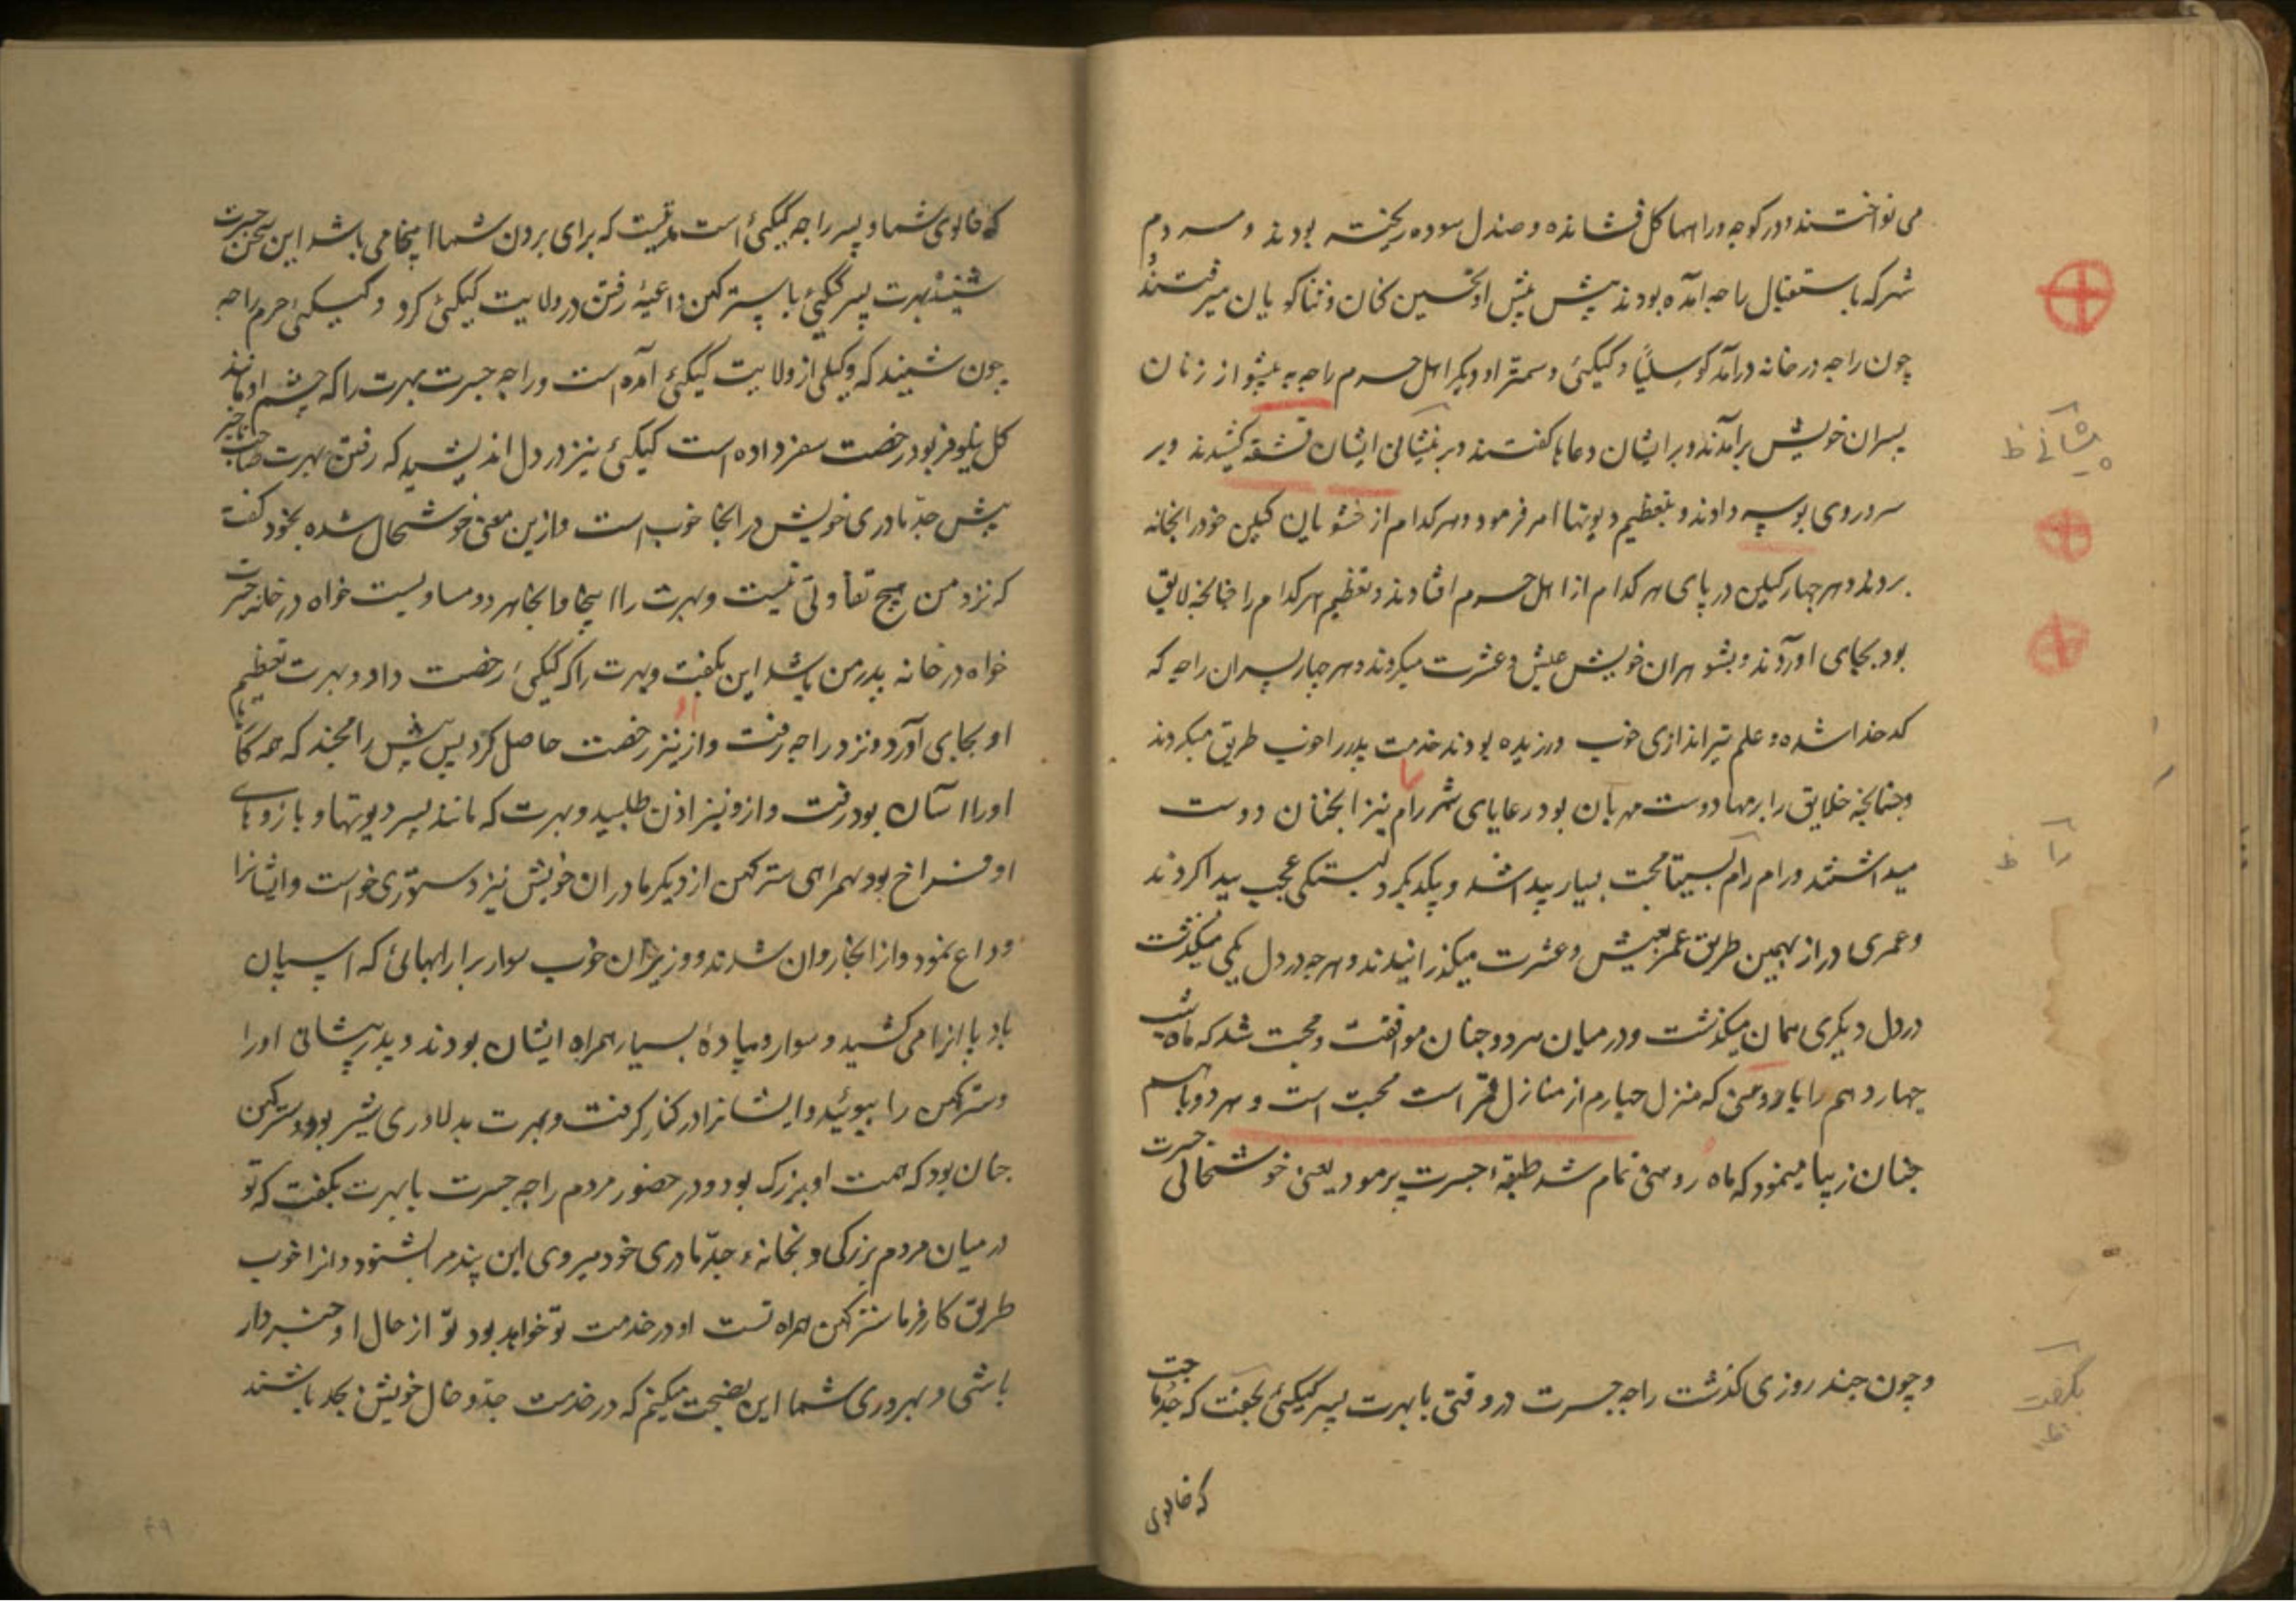 می نواختند و در کوچه و راهها کل فشانده و صندل سوده ریخته بودند و مردم
شهر که باستقبال راجه آمده بودند پیش پیش او تحسین کنان و ثناکویان میرفتند
چون راجه در خانه درآمد کوسلیا و کیکئی و سمترا و دیکر اهل حرم راجه به پیشواز زنان
پسران خویش برآمدند و بر ایشان دعاها کفتند و بر پیشانی ایشان قشقه کشیدند و بر
سر و روی بوسه دادند و بتعظیم دیوتها امر فرمود و هر کدام از خشویان کیلن خود را بخانه
بردند و هر چهار کیلن در پای هر کدام از اهل حرم افتادند و تعظیم هر کدام را چنانچه لایق
بود بجای آوردند و بشوهران خویش عیش و عشرت میکردند و هر چهار پسران راجه که
کدخدا شده و علم تیراندازی خوب ورزیده بودند خدمت پدر را خوب طریق میکردند
و چنانچه خلایق را برمها دوست مهربان بود رعایای شهر رام نیز آنچنان دوست
میداشتند و رام را بسیتا محبت بسیار پیدا شد و یکدیکر دلبستکی عجب پیدا کردند
و عمری دراز بهمین طریق عمر بعیش و عشرت میکذرانیدند و هرچه در دل یکی میکذشت
در دل دیکری همان میکذشت و در میان هر دو چنان موافقت و محبت شد که ماه شب
چهاردهم را با روهنی که منزل چهارم از منازل قمر است محبت است و هر دو باهم
چنان زیبا مینمود که ماه روهنی تمام شد طبقهٔ جسرت پرمود یعنی خوشحالی جسرت
و چون چند روزی کذشت راجه جسرت در وقتی با بهرت پسر کیکئی بجهت که جد مادری
که خالوی
پیشانی ظ
را ظ
بکفت ظ
که خالوی شما و پسر راجه کیکئی است مدتیست که برای بردن شما اینجا می باشد این سخن جسرت
شنیند بهرت پسر کیکئی با سترکهن داعیهٔ رفتن در ولایت کیکئی کرد و کیکئی حرم راجه
چون شنیند که وکیلی از ولایت کیکئی آمده است و راجه جسرت بهرت را که چشم او مانند
کل نیلوفر بود رخصت سفر داده است کیکئی نیز در دل اندیشید که رفتن بهرت
پیش جد مادری خویش در انجا خوب است و ازین معنی خوشحال شده بخود کفت
که نزد من هیچ تفاوتی نیست و بهرت را اینجا و انجا هر دو مساویست خواه در خانه جسرت
خواه در خانه پدر من باشد این بکفت و بهرت را که کیکئی رخصت داد و بهرت تعظیم
او بجای آورد و نزد راجه رفت و از او نیز رخصت حاصل کرد پس پیش رامچند که همه کارها
او را آسان بود رفت و ازو نیز اذن طلبید و بهرت که مانند پسر دیوتها و بازوهای
او فراخ بود بهمراهی سترکهن از دیکر مادران خویش نیز دستوری خواست و ایشانرا
وداع نمود و از انجا روان شدند و وزیران خوب سوار بر ارابهائی که اسپان
بادپا انرا می کشید و سوار و پیادهٔ بسیار همراه ایشان بودند و پدر پیشانی او را
و سترکهن را ببوئید و ایشانرا در کنار کرفت و بهرت بدلاوری شیر بود و سترکهن
چنان بود که همت او بزرک بود و در حضور مردم راجه جسرت با بهرت بکفت که تو
درمیان مردم بزرکی و بخانهٔ جد مادری خود میروی این پند مرا بشنو و انرا خوب
طریق کارفرما سترکهن همراه تست او در خدمت تو خواهد بود تو از حال او خبردار
باشی و بهروری شما این نصیحت میکنم که در خدمت جد و خال خویش بجد باشند
۴۹